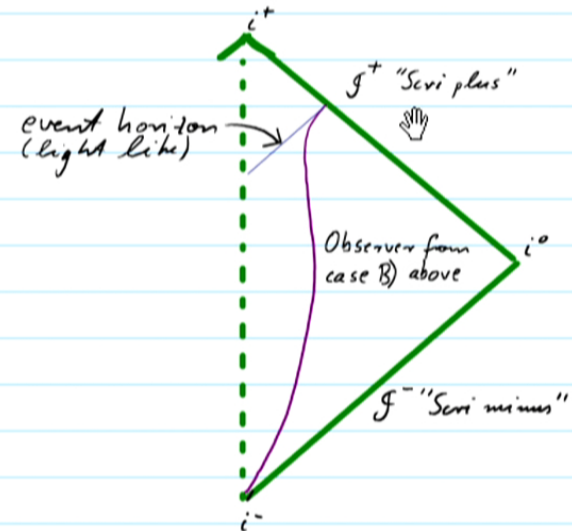 i⁺
𝓘⁺ "Scri plus"
event horizon
(light like)
Observer from
case B) above
i⁰
𝓘⁻ "Scri minus"
i⁻